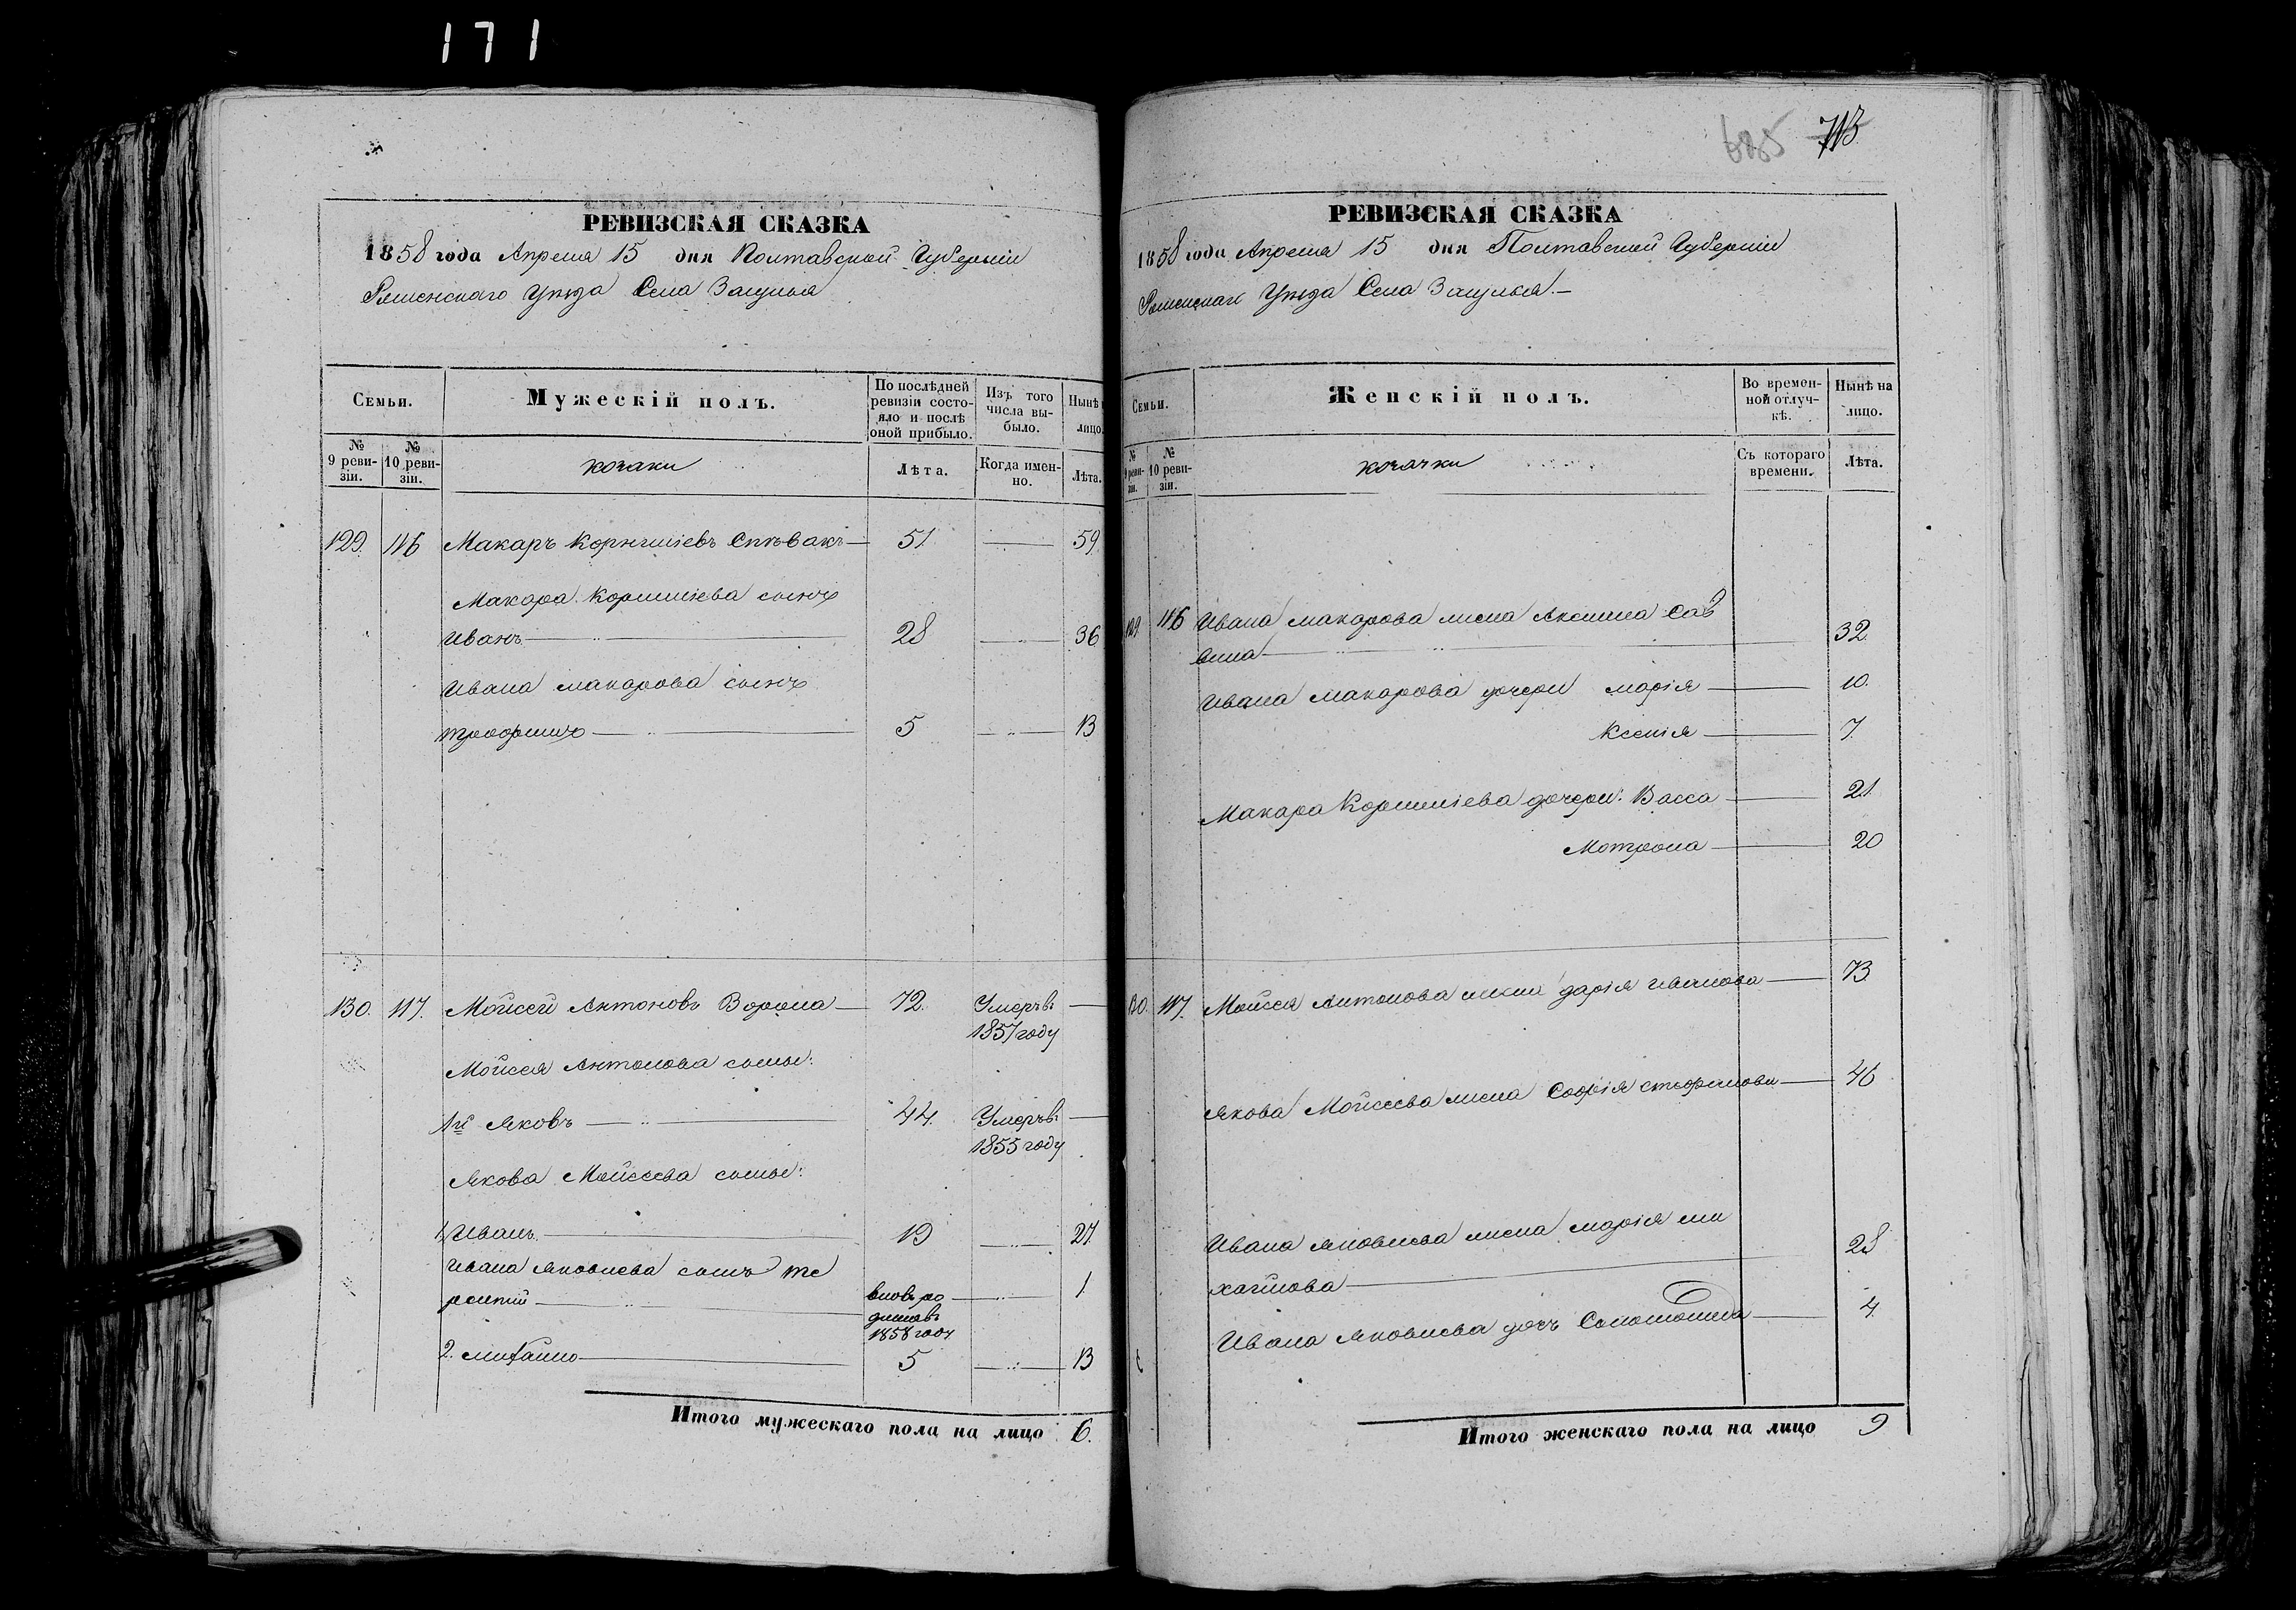 171
РЕВИЗСКАЯ СКАЗКА
1858 года Апреля 15 дня Полтавской Губерніи
Роменскаго Уѣзда Села Засулья
Семьи.
Мужескій полъ.
По послѣдней ревизіи состояло и послѣ оной прибыло.
Изъ того числа выбыло.
Нынѣ
лицо.
№ 9 ревизіи.
№ 10 ревизіи.
козаки
Лѣта.
Когда именно.
Лѣта.
129. 116 Макаръ Корнѣліевъ Спѣвакъ 51 59
Макара Корниліева сынъ
Иванъ 28 36
Ивана Макарова сынъ
Трофимъ 5 13
130. 117. Мойсей Антоновъ Ворона 72. Умеръ въ
1857 году
Мойсея Антонова сыны:
1й Яковъ 44. Умеръ въ
1855 году
Якова Мойсеева сыны:
1 Иванъ 19 27
Ивана Яковлева сынъ Те
рентій вновь ро 1
дился въ
1858 году
2. Михайло 5 13
Итого мужескаго пола на лицо 6.
685 713
РЕВИЗСКАЯ СКАЗКА
1858 года Апреля 15 дня Полтавской Губерніи
Роменскаго Уѣзда Села Засулья.
Семьи.
Женскій полъ.
Во временной отлучкѣ.
Нынѣ на лицо.
№ 9 ревизіи.
№ 10 ревизіи.
козачки
Съ котораго времени.
Лѣта.
129 116 Ивана Макарова жена Аксинья Сав
вина 32
Ивана Макарова дочери Марія 10.
Ксенія 7
Макара Корниліева дочери: Васса 21.
Мотрона 20
130. 117. Мойсея Антонова жена Дарія Иванова 73
Якова Мойсеева жена Софія Стефанова 46
Ивана Яковлева жена Марія Ми
хайлова 28
Ивана Яковлева дочь Соломонида 4
Итого женскаго пола на лицо 9